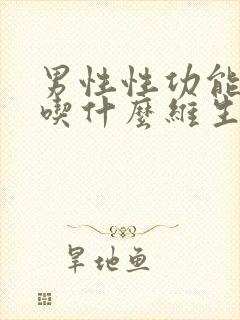 男性性功能
喫什麼維生
旱地鱼